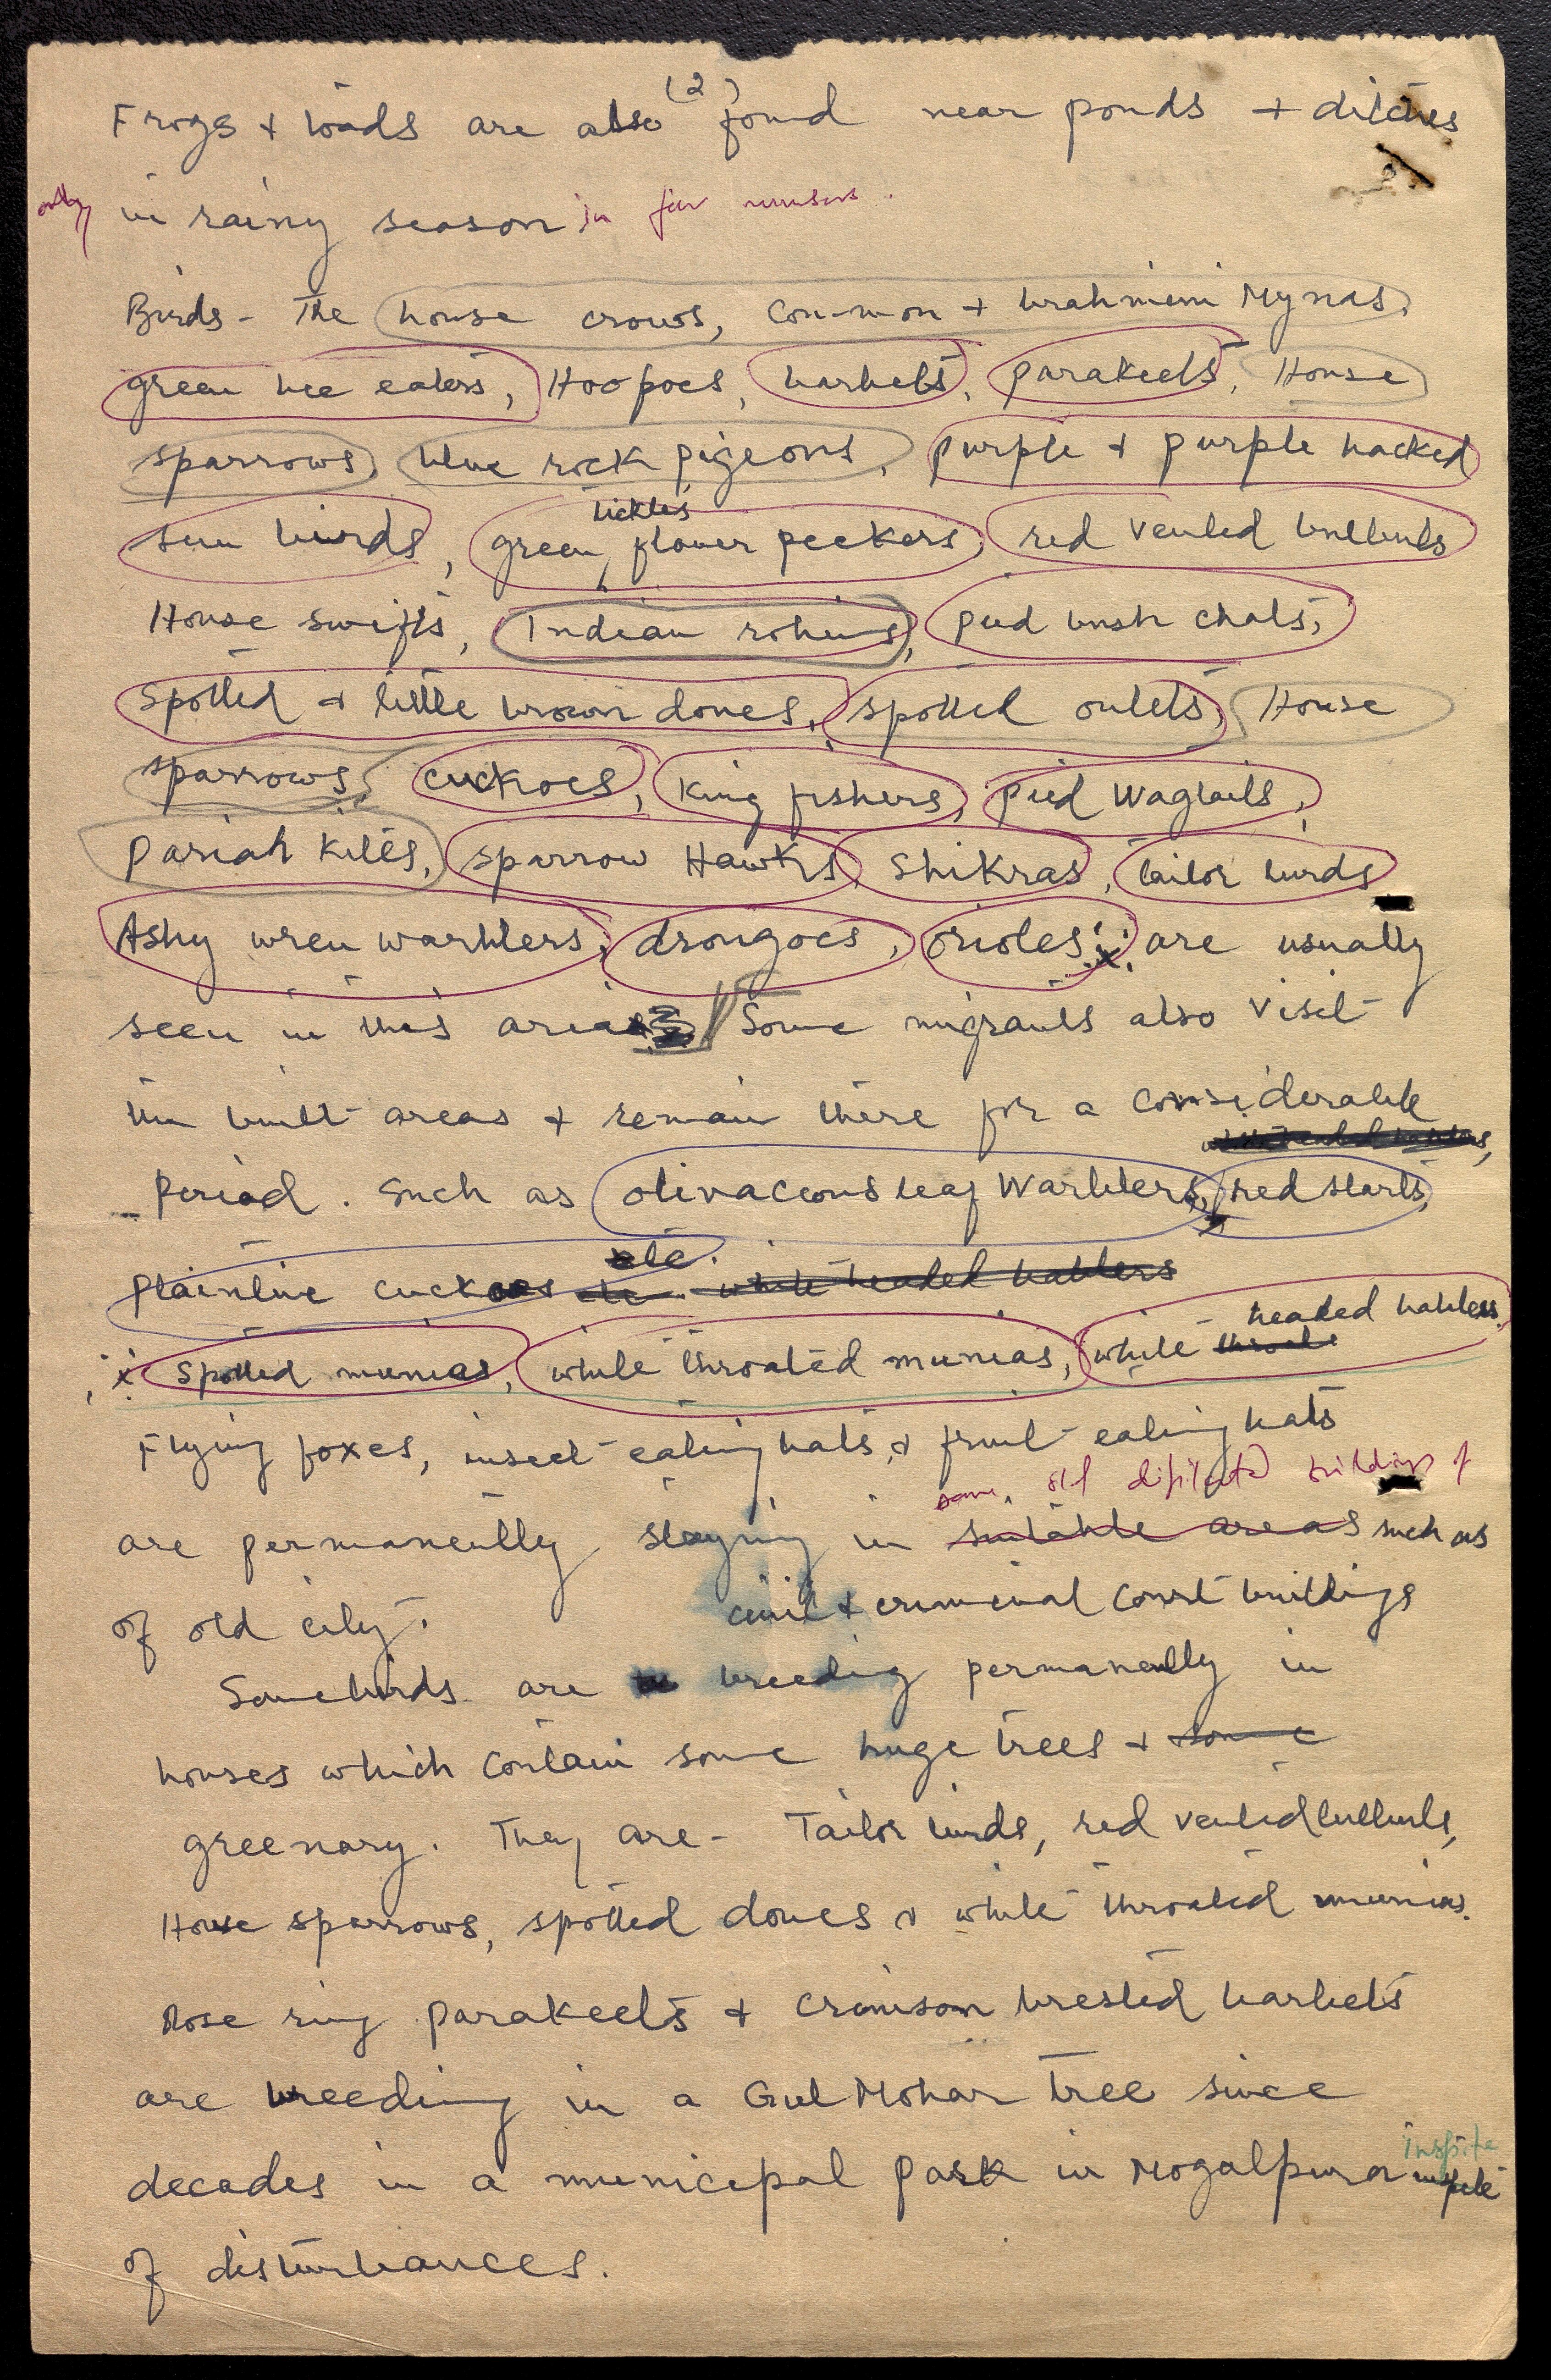 (2)
Frogs + toads are also found near ponds + ditches
only in rainy season in few numbers.
Birds - The house crows, common + brahmini Mynas,
green bee eaters, Hoopoes, barbets, parakeets, House
sparrows, blue rock pigeons, purple + purple backed
sun birds, green tickles flower peckers, red vented bulbuls
House swifts, Indian robins, pied bush chats,
Spotted + little brown doves, spotted owlets, House
sparrows, cuckoos, king fishers, pied Wagtails,
Pariah kites, sparrow Hawks, Shikras, tailor birds
Ashy wren warblers, drongoes, orioles, x are usually
seen in this area Some migrants also visit
the built areas + remain there for a considerable
white headed babblers,
period. Such as olivaceous leaf Warblers, red starts,
plaintive cuckoos etc. white headed babblers
x Spotted munias, white throated munias, white headed babblers
Flying foxes, insect eating bats, + fruit eating bats
some old dipilated buildings of
are permanently staying in suitable areas such as
of old city. civil + criminal Court buildings
Some birds are breeding permanently in
houses which contain some huge trees + some
greenary. They are - Tailor birds, red vented bulbuls,
House sparrows, spotted doves + white throated munias.
Rose ring parakeets + crimson brested barbets
are breeding in a Gul Mohar tree since
decades in a municipal park in Mogalpura inspite
of disturbances.